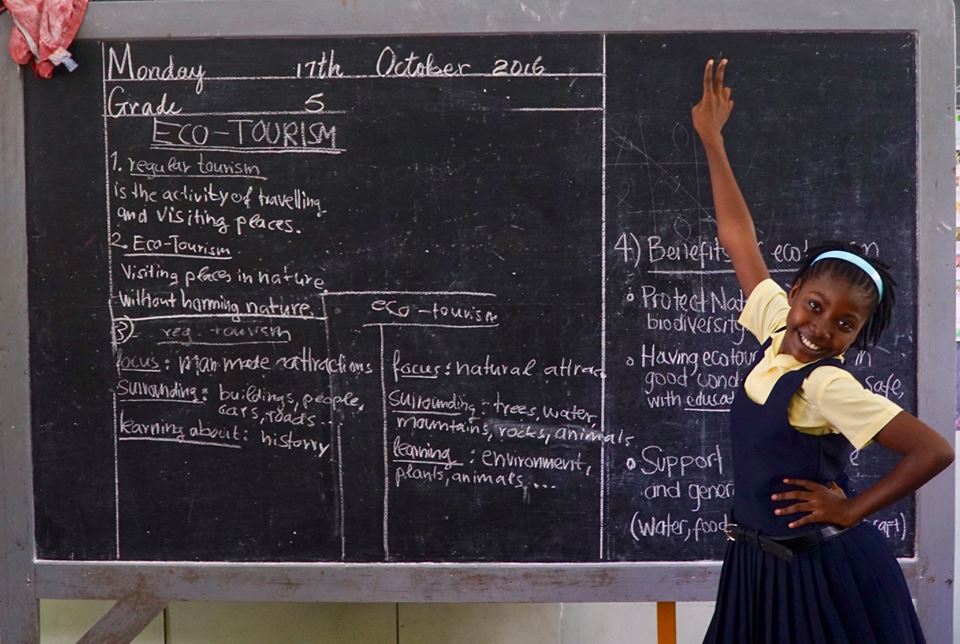 Monday 17th October 2016
Grade 5
ECO-TOURISM
1. regular tourism
is the activity of travelling
and visiting places.
2. Eco-Tourism
Visiting places in nature
without harming nature.
3) reg. tourism
focus: man made attractions
Surrounding: buildings, people,
cars, roads...
learning about: history
eco-tourism
focus: natural attrac
Surrounding: trees, water,
mountains, rocks, animals
learning: environment,
plants, animals...
4) Benefits eco
Protect Nat
biodiversity
Having ecotou in
good cond safe,
with educat
Support
and gener
(water, food aft)